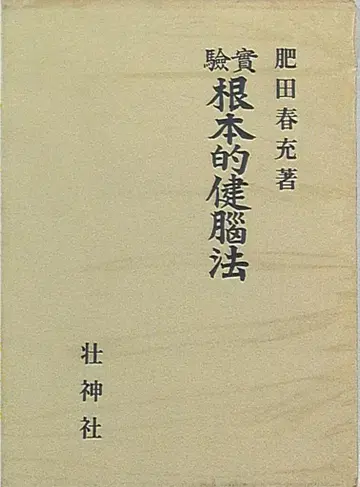 肥田春充著
實驗
根本的健腦法
壮神社